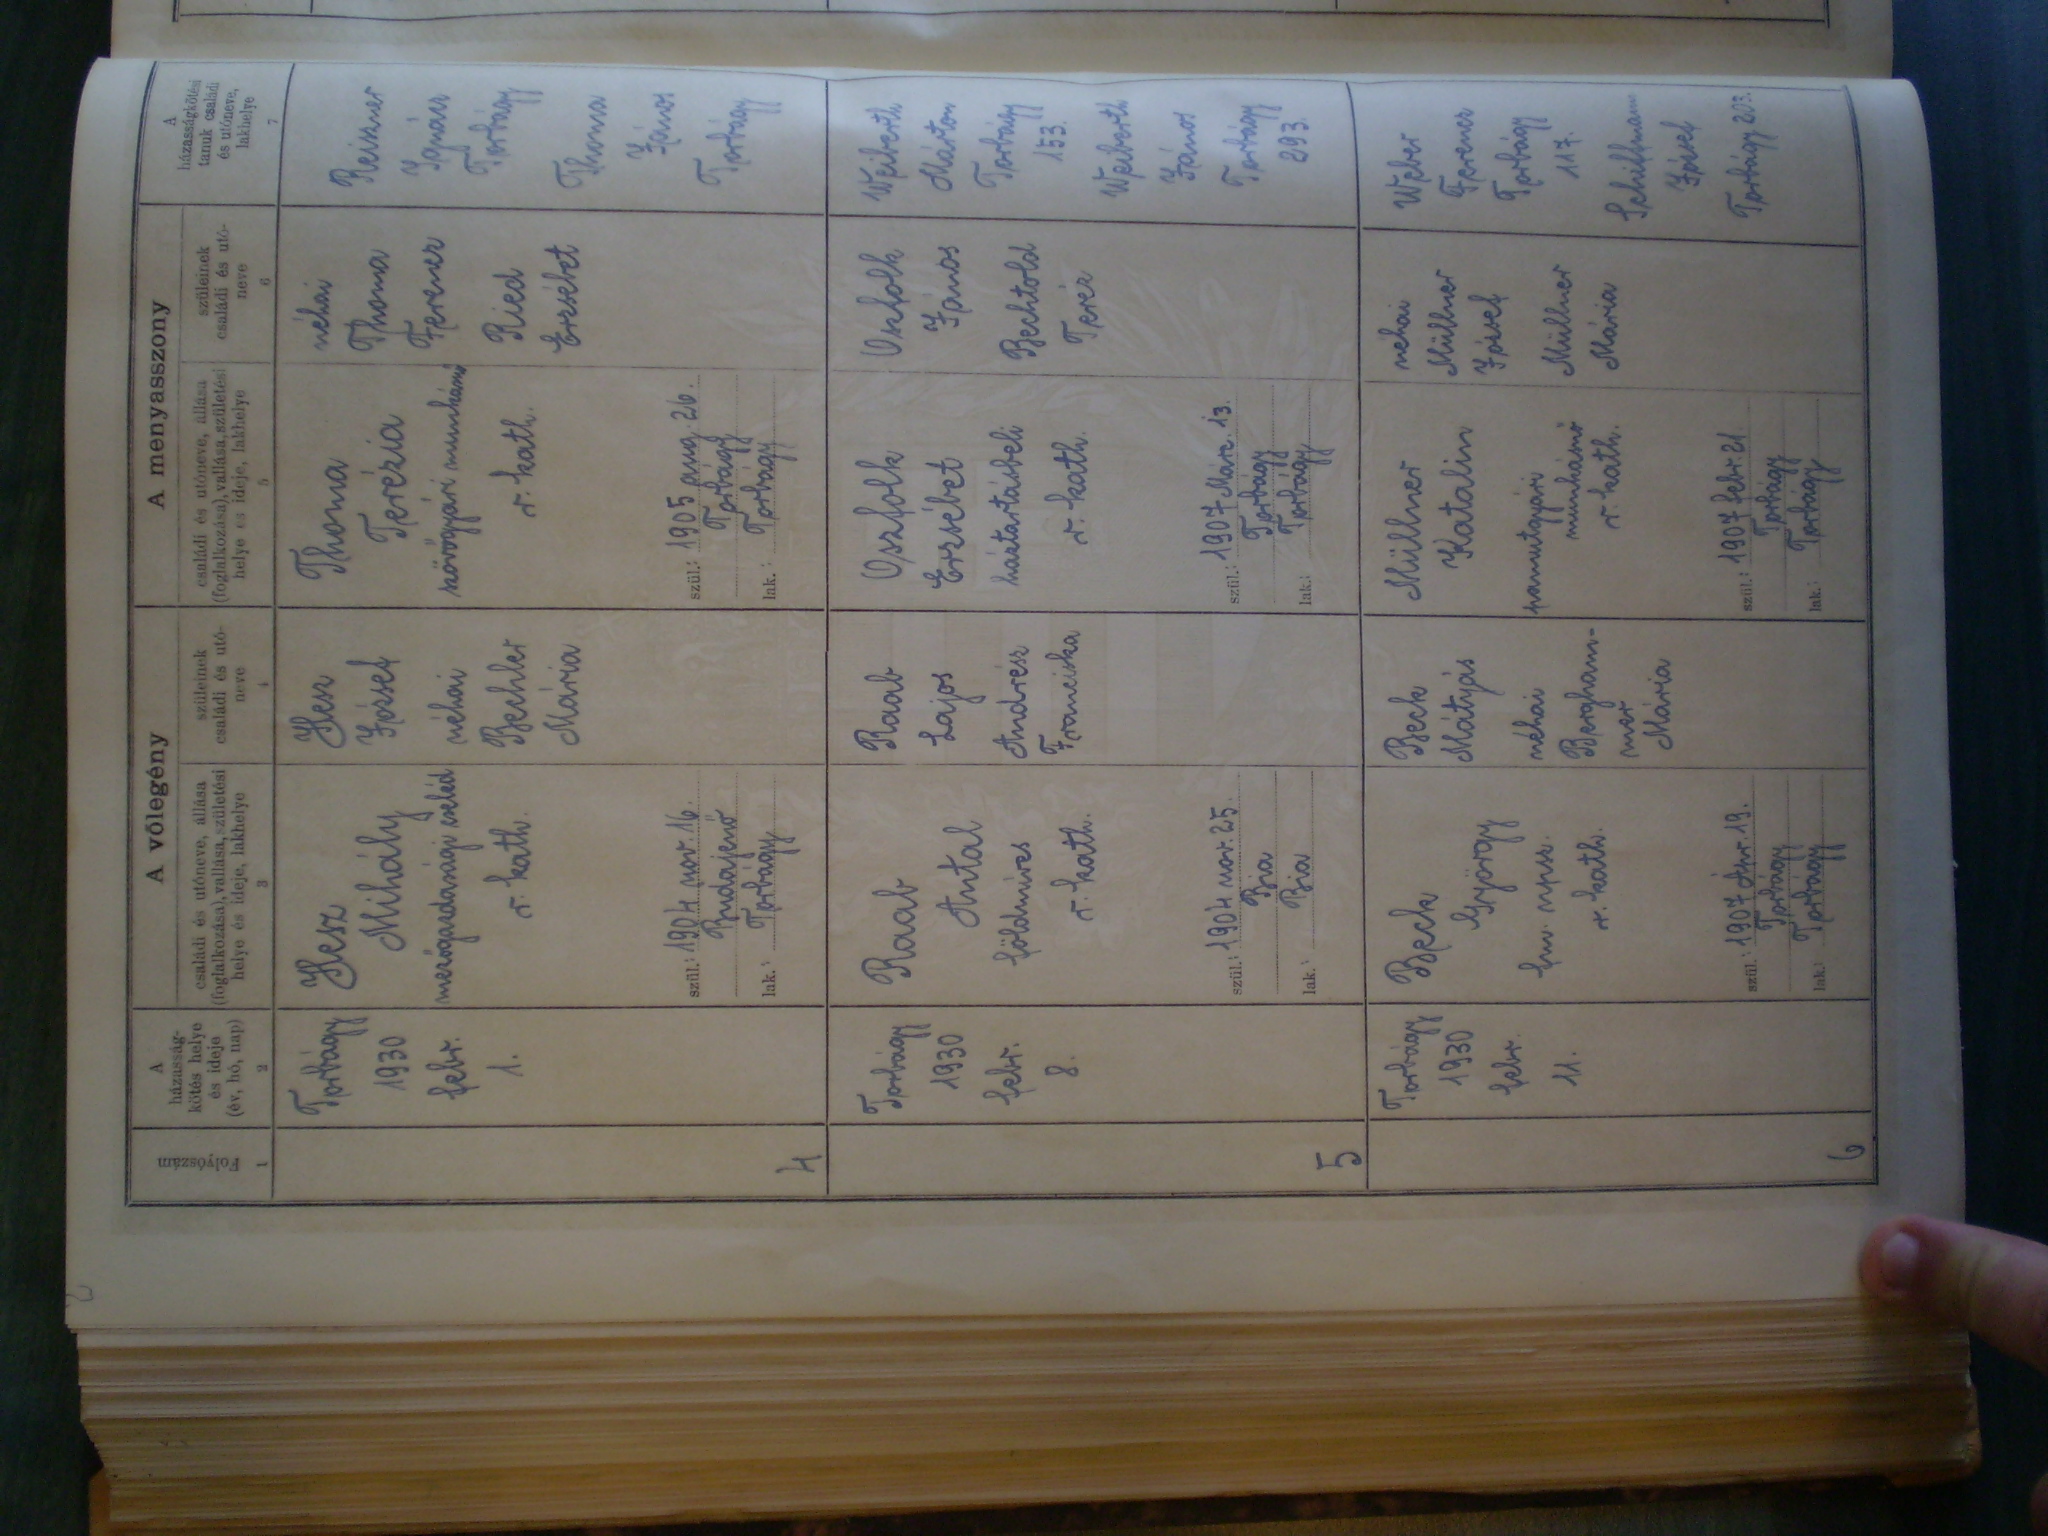 A
házasság-
kötés helye
és ideje
(év, hó, nap)
A vőlegény
családi és utóneve, állása
(foglalkozása), vallása, születési
helye és ideje, lakhelye
szüleinek
családi és utó-
neve
A menyasszony
családi és utóneve, állása
(foglalkozása), vallása, születési
helye és ideje, lakhelye
szüleinek
családi és utó-
neve
A
házasságkötési
tanuk családi
és utóneve,
lakhelye
1
2
3
4
5
6
7
4
Torbágy
1930
febr.
1.
Hesz
Mihály
mezőgadasági cseléd
r. kath.
szül.: 1904 nov. 16.
Budajenő
lak.: Torbágy
Hesz
József
néhai
Bechler
Mária
Thoma
Terézia
szövőgyári munkásnő
r. kath.
szül.: 1905 aug. 26.
Torbágy
lak.: Torbágy
néhai
Thoma
Ferenc
Ried
Erzsébet
Reiszner
Ignác
Torbágy
Thoma
János
Torbágy
5
Torbágy
1930
febr.
8.
Raab
Antal
földmíves
r. kath.
szül.: 1904 nov. 25.
Bia
lak.: Bia
Raab
Lajos
Andrész
Franciska
Oszfolk
Erzsébet
háztartásbeli
r. kath.
szül.: 1907 Márc. 13.
Torbágy
lak.: Torbágy
Oszfolk
János
Bechtold
Teréz
Weiberth
Márton
Torbágy
153.
Weiberth
János
Torbágy
293.
6
Torbágy
1930
febr.
11.
Beck
György
fmv. npsz.
r. kath.
szül.: 1907 Ápr. 19.
Torbágy
lak.: Torbágy
Beck
Mátyás
néhai
Bergham-
mer
Mária
Müllner
Katalin
pamutgyári
munkásnő
r. kath.
szül.: 1907 febr 21
Torbágy
lak.: Torbágy
néhai
Müllner
József
Müllner
Mária
Weber
Ferenc
Torbágy
117.
Schillmann
József
Torbágy 203.